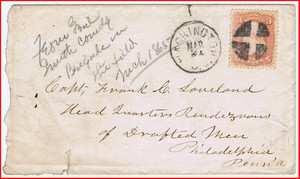 From Gent
Smith County
Brigade in
the field
Mch 1865
WASHINGTON
MAR
Capt. Frank C. Loveland
Head Quarters Rendezvous
of Drafted Men
Philadelphia
Penn'a